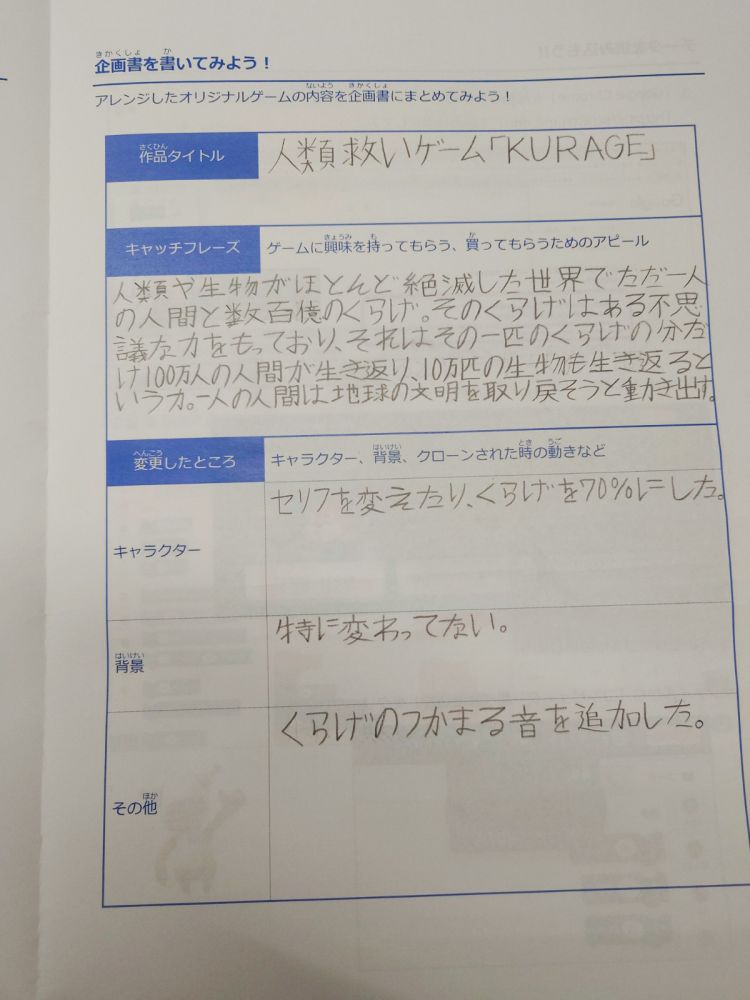 企画書を書いてみよう！
アレンジしたオリジナルゲームの内容を企画書にまとめてみよう！
作品タイトル
人類救いゲーム「KURAGE」
キャッチフレーズ
ゲームに興味を持ってもらう、買ってもらうためのアピール
人類や生物がほとんど絶滅した世界でただ一人
の人間と数百億のくらげ。そのくらげはある不思
議な力をもっており、それはその一匹のくらげの分だ
け100万人の人間が生き返り、10万匹の生物も生き返ると
いう力。一人の人間は地球の文明を取り戻そうと動き出す。
変更したところ
キャラクター、背景、クローンされた時の動きなど
キャラクター
セリフを変えたり、くらげを70%にした。
背景
特に変わってない。
その他
くらげのつかまる音を追加した。